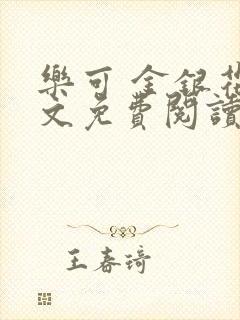 樂可 金銀花
文免費閱讀
王春琦